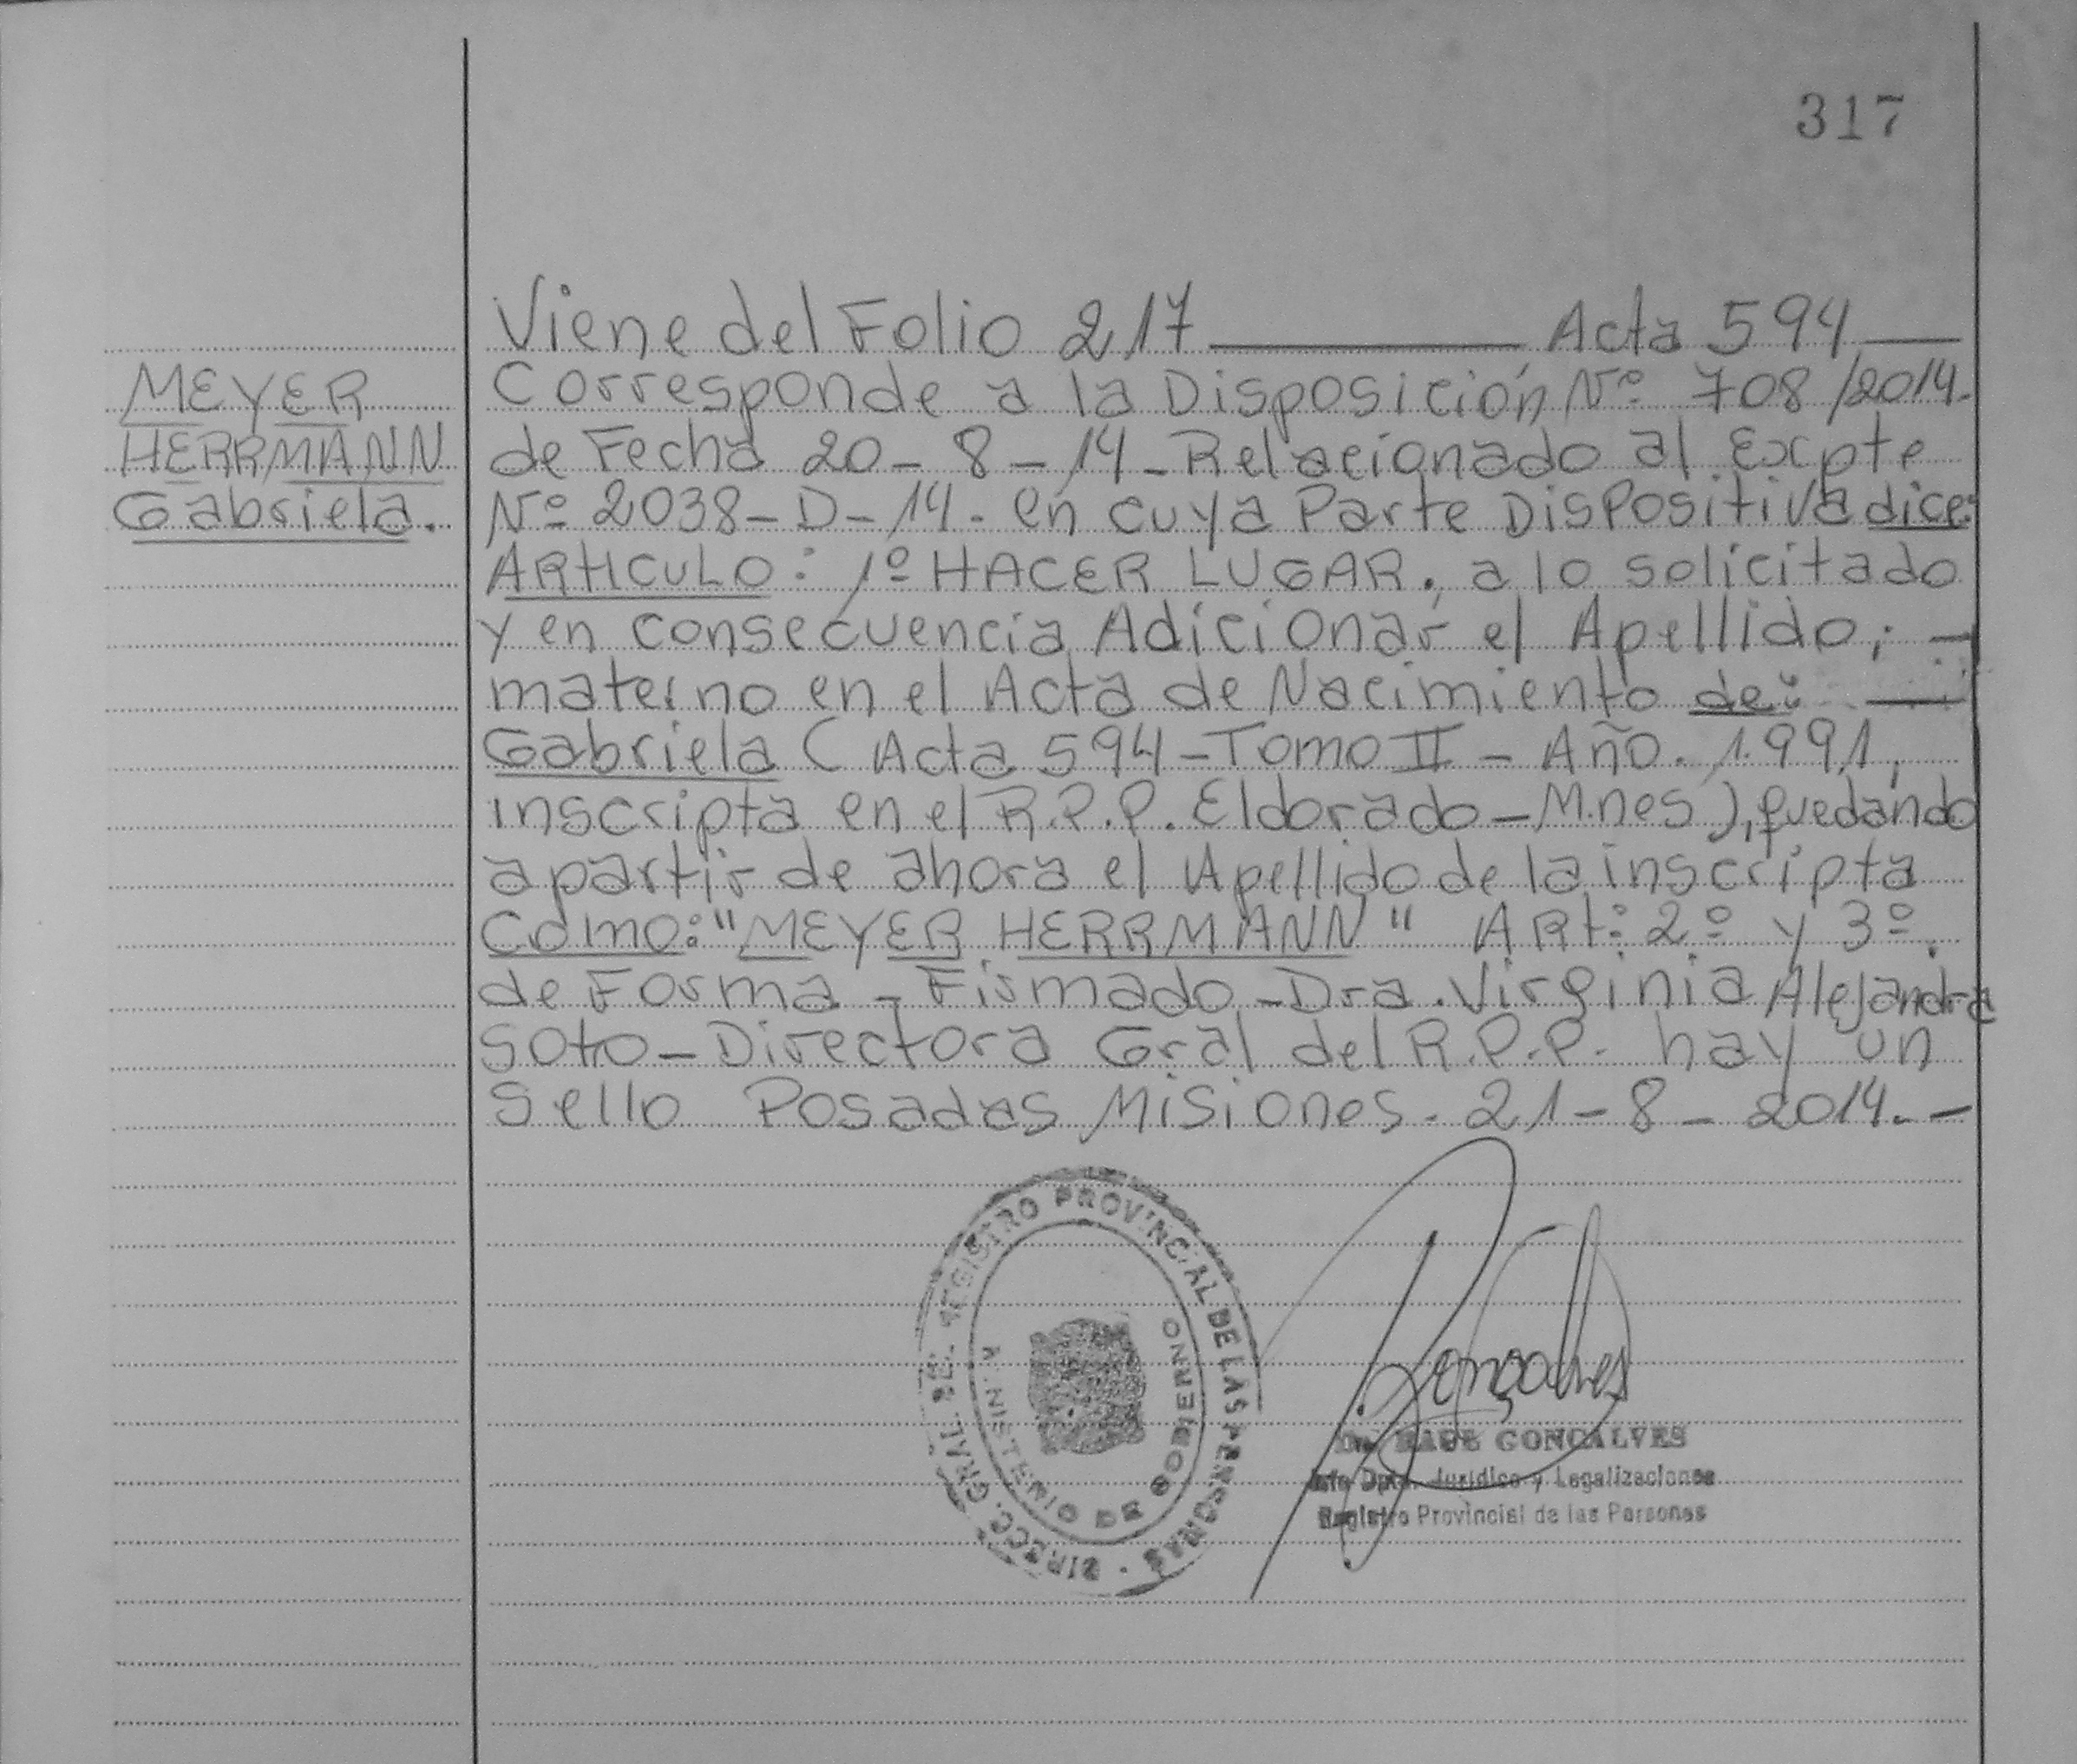 317
Viene del Folio 217 ———— Acta 594 —
MEYER
HERRMANN
Gabriela.
Corresponde a la Disposición Nº 708/2014.
de Fecha 20-8-14-Relacionado al Expte
Nº 2038-D-14. en cuya Parte Dispositiva dice:
ARTICULO: 1º HACER LUGAR. a lo solicitado
y en consecuencia Adicionar el Apellido; —
materno en el Acta de Nacimiento de: —
Gabriela (Acta 594-Tomo II - Año. 1.991,
inscripta en el R.P.P. Eldorado-Mnes), quedando
a partir de ahora el Apellido de la inscripta
Como: "MEYER HERRMANN" ARt: 2º y 3º.
de Forma - Firmado - Dra. Virginia Alejandra
Soto - Directora Gral del R.P.P. hay un
Sello Posadas Misiones. 21-8-2014.-
DIRECC. GRAL. DE REGISTRO PROVINCIAL DE LAS PERSONAS
MINISTERIO DE GOBIERNO
Gonçalves
RAUL GONCALVES
Jefe Dpto. Jurídico y Legalizaciones
Registro Provincial de las Personas